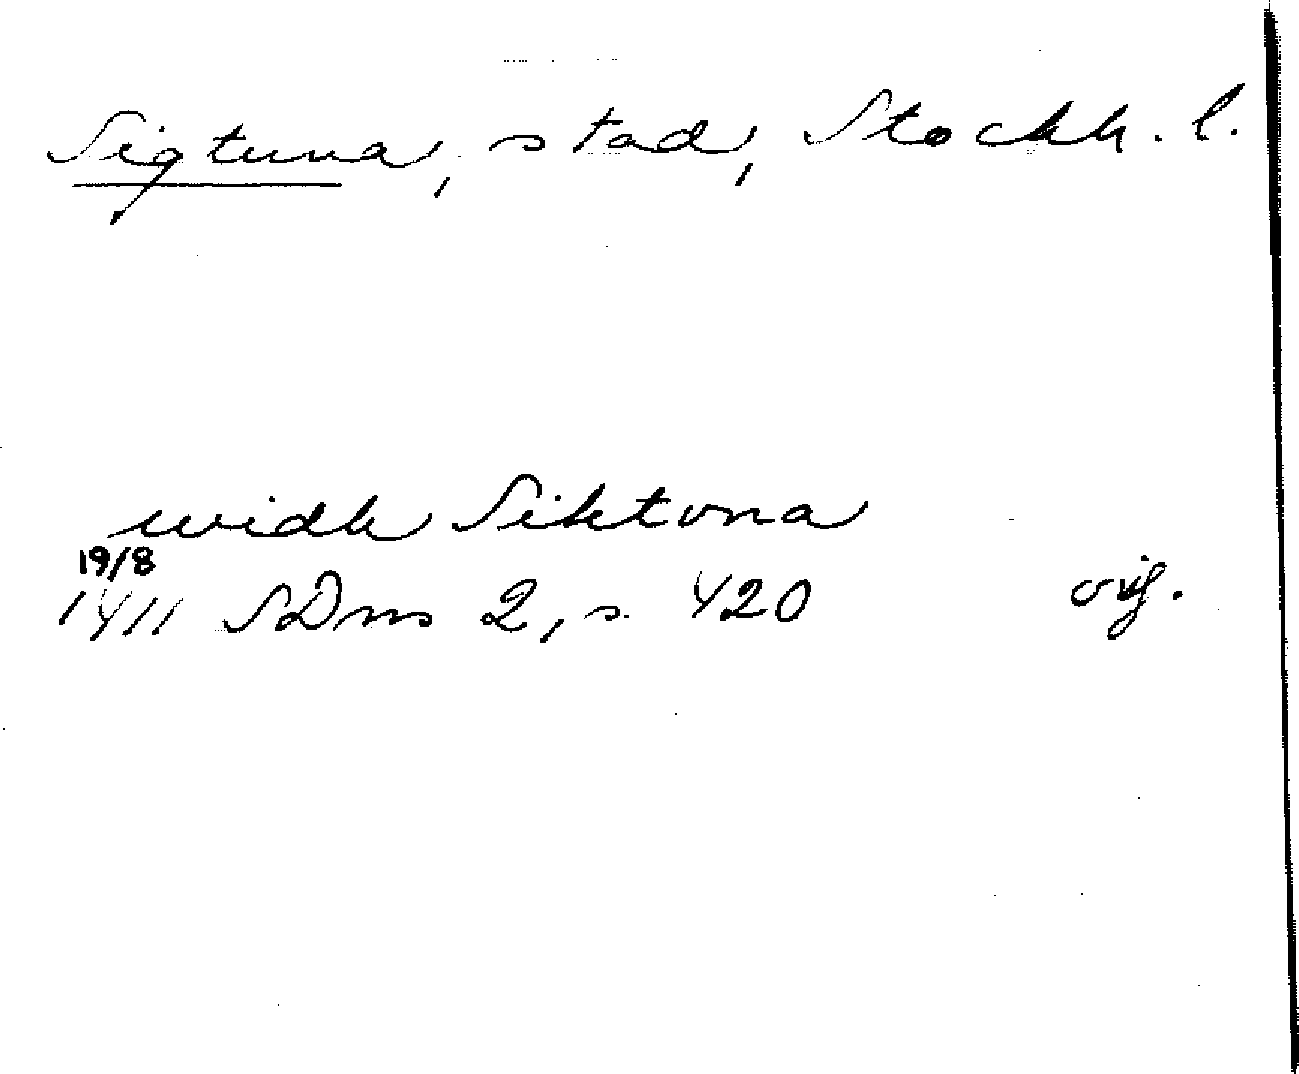 Sigtuna, stad, Stockh. l.
widh Siktvna
19/8
1411 SDns 2, s. 420 orig.